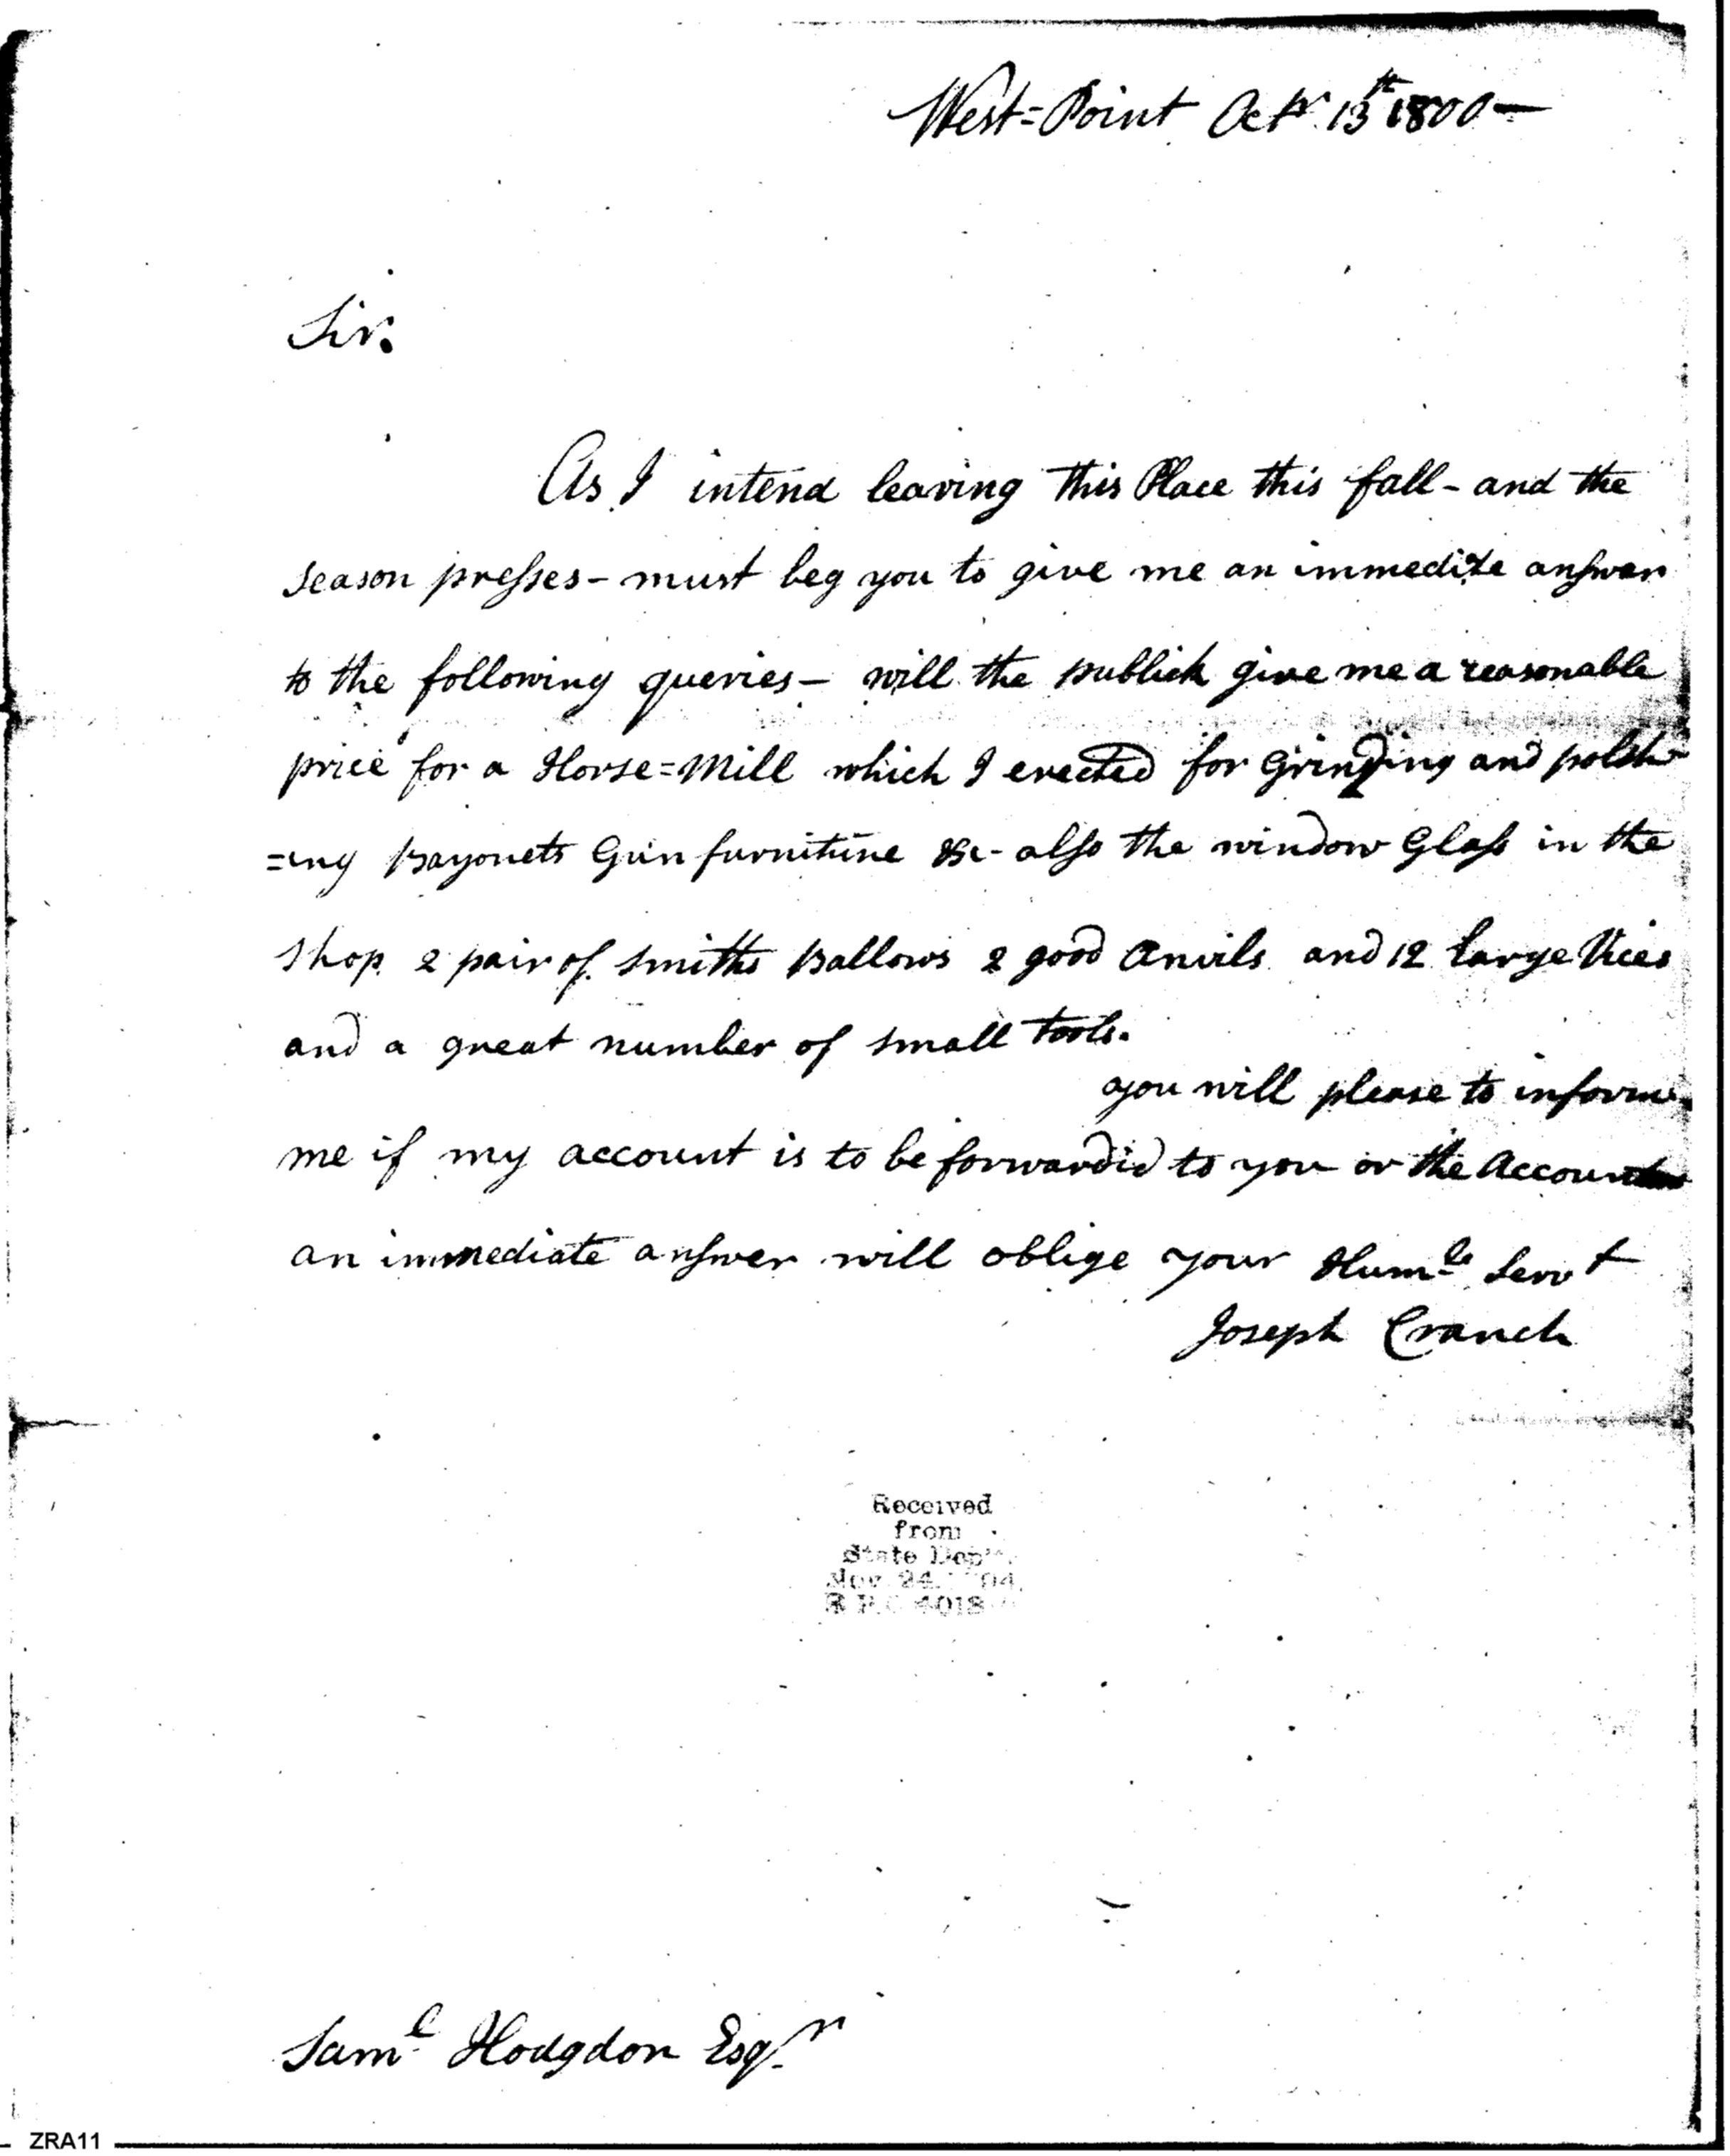 West=Point Octr. 13th 1800—
Sir.
As I intend leaving this Place this fall - and the
season presses - must beg you to give me an immedite answer
to the following queries - will the publick give me a reasonable
price for a Horse=Mill which I erected for Grinding and polish
=ing Bayonets Gun furniture &c - also the window Glass in the
shop 2 pair of smiths Ballows 2 good Anvils and 12 large Vices
and a great number of small tools.
you will please to inform
me if my account is to be forwardid to you or the
an immediate answer will oblige your Humle Servt
Joseph Cranch
Received
from
State Dept.
Nov 24
4018
Saml Hodgdon Esqr
ZRA11